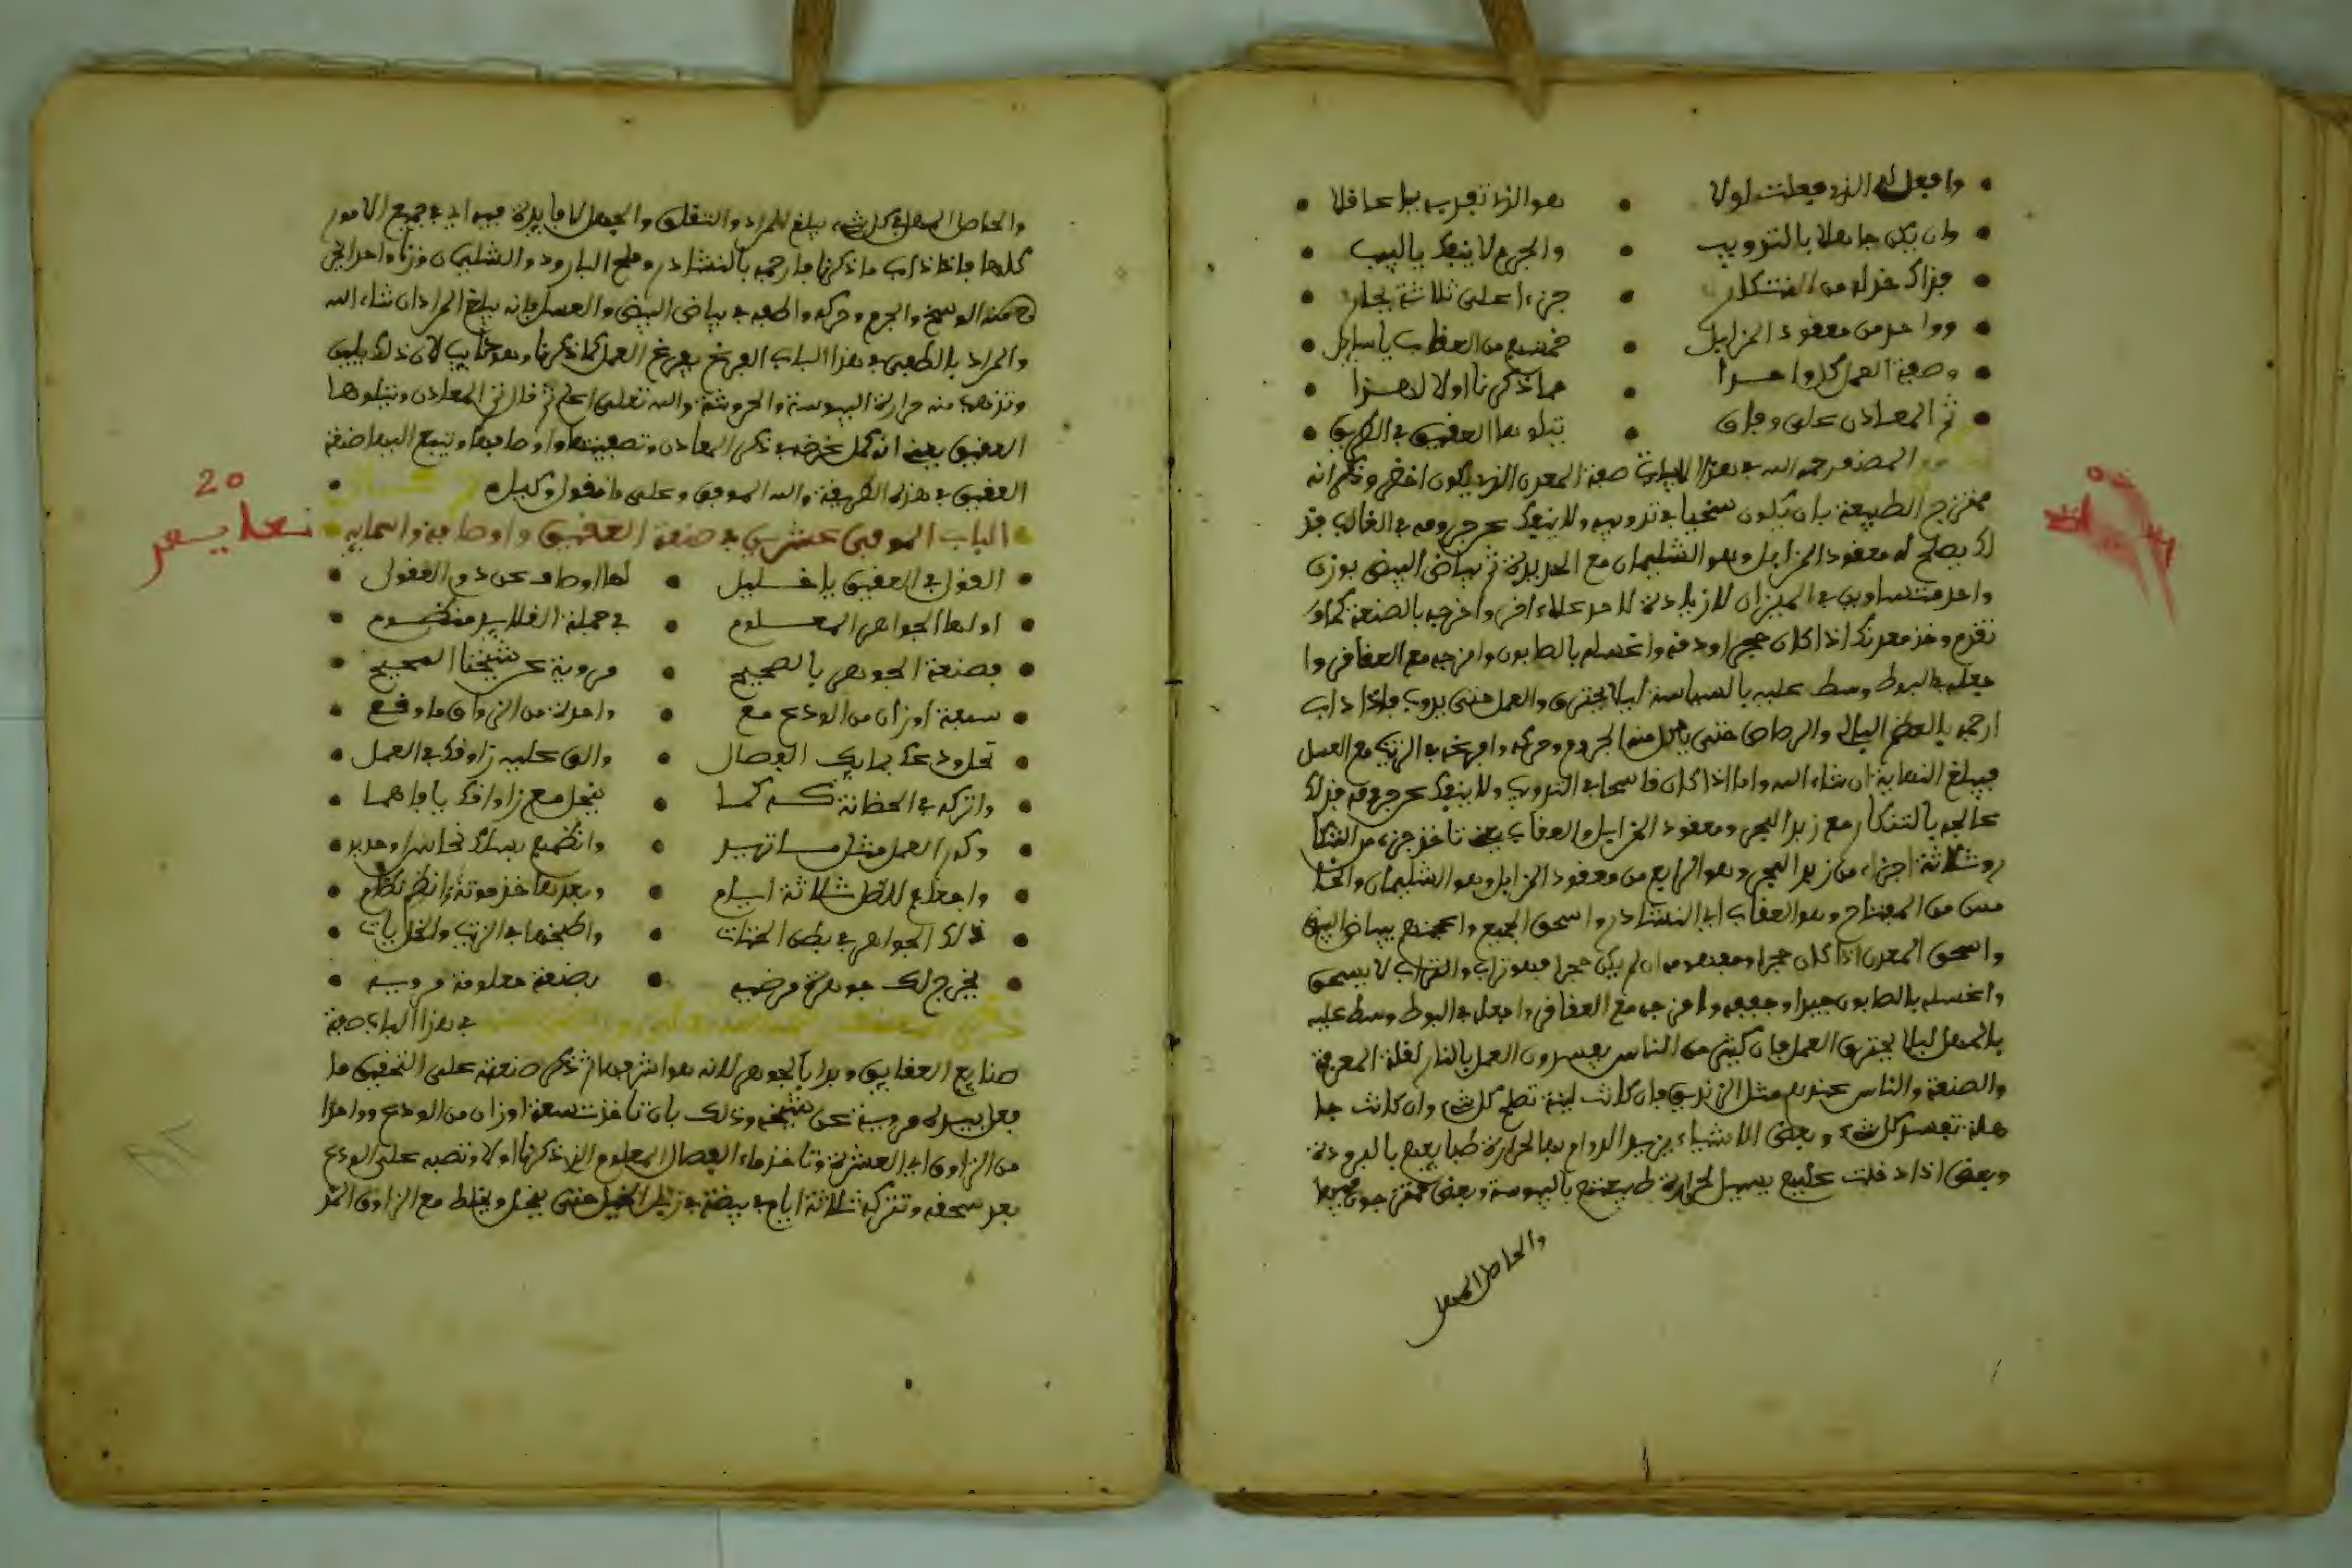 وافعل له الذي فعلت اولا • هو الذي تفربه يا عاقلا
وان يكن جاهلا بالتذويب • والجرم لا ينفك يا لبيب
فذاك خذ له من التنكار • جزءا على ثلاثة بحار
وواحد من معقود المزابل • خمسهم من العقاب يا سايل
وصفة العمل كلا واحدا • مما ذكرنا اولا لا هذا
ثم المعادن على وفاق • نتلوها العقيق في الطريق
المصنف رحمه الله في هذا الباب صفة المعدن الذي يكون اخضر وذكر انه
ممتزج الطبيعة بان يكون سخيا في تذويبه ولا ينفك عن جرومه في الغالب فذ
لك يصلح له معقود المزابل وهو الشليمان مع الحديدة ثم بياض البيض بوزن
واحد متساوين في الميزان لا زيادة لاحد على اخر واخرجه بالصنعة كما
تقدم وخذ معدنك اذا كان حجرا ودقه واغسله بالصابون وامزجه مع العقاقر وا
جعله في البوط وسط عليه بالسياسة ليلا يحترق والعمل حتى يذوب فاذا ذاب
ارحمه بالعظم البالي والرصاص حتى ياكل منه الجروم وحركه وافرغه في الزيت مع العسل
فيبلغ النهاية ان شاء الله واما اذا كان قاسحا في التذويب ولا ينفك عن جرومه فذلك
عالجه بالتنكار مع زبد البحر ومعقود المزابل والعقاب يعني تاخذ جزء من التنكا
ر وثلاثة اجزاء من زبد البحر وهو الرابع من معقود المزابل وهو الشليمان والخا
مس من المفتاح وهو العقاب اي النشادر واسحق الجميع واعجنهم ببياض البيض
واسحق المعدن اذا كان حجرا ومعدنه ان لم يكن حجرا فهو تراب والتراب لا يسحق
واغسله بالصابون جيدا وجففه وامزجه مع العقاقر واجعله في البوط وسط عليه
بالمهل ليلا يحترق العمل فان كثير من الناس يفسدون العمل بالنار لقلة المعرفة
والصنعة والناس عندهم مثل الزنديق فان كانت لينة تصلح كل شيء وان كانت جا
هلة تفسد كل شيء وبعض الاشياء يريد الدوام بها لحرارة طبايعهم بالبرودة
وبعض اذا دخلت عليهم يسيل لحرارة طبيعتهم باليبوسة وبعض ممتزجون فيها
والحاصل المهل
والحاصل المهل في كل شيء يبلغ المراد والتقلق والجهل لا فايدة فيه اي في جميع الامور
كلها فاذا ذاب ما ذكرنا فارحمه بالنشادر وملح البارود والشليمان وزنا واحدا يخر
ج منه الوسخ والجرم وحركه واطفه في بياض البيض والعسل فانه يبلغ المراد ان شاء الله
والمراد بالطفي في هذا الباب الفرغ يفرغ العمل كما ذكرنا وهو ذايب لان ذلك يلين
وتذهب منه حرارة اليبوسة والحروشة والله تعالى اعلم ثم قال ثم المعادن ونتلوها
العقيق يعني انه كمل غرضه في ذكر المعادن وتصفيتها واوصافها وتبع اليها صنعة
العقيق في هذه الطريقة والله الموفق وعلى ما نقول وكيل
20
الباب الموفى عشرين في صنعة العقيق واوصافه واسمايه
القول في العقيق يا خليل • لها اوصاف عن ذوي العقول
اولها الجواهر المعلوم • في جملة القلايد منظوم
فصنعة الجوهر بالصحيح • مروية عن شيخنا الصحيح
سبعة اوزان من الودع مع • واحدة من الزواق ما وقع
تحل ودعك بمايك الفصال • والق عليه زاوقك في العمل
واتركه في الحظانة كما • ينحل مع زاوقك يا فاهما
وكور العمل مثل ما تريد • وانظمهم بسلك نحاس او حديد
واجعلهم للظل ثلاثة ايام • وبعدها خذ حوتة انظم نظام
ذلك الجواهر في بطن الحوت • واطبخها في الزيت والخل يات
يخرج لك جوهرة مرضيه • بصنعة معلومة مرويه
في هذا الباب صفة
صنايع العقايق وبدا بالجوهر لانه هو اشرفهم ثم ذكر صنعته على التحقيق ما
فعل بيده مروية عن شيخه وذلك بان تاخذ سبعة اوزان من الودع وواحدا
من الزاوق اي العشرة وتاخذ ماء الفصال المعلوم الذي ذكرنا اولا وتصبه على الودع
بعد سحقه وتتركه ثلاثة ايام في بيضة في زبل الخيل حتى ينحل ويخلط مع الزاوق المذ